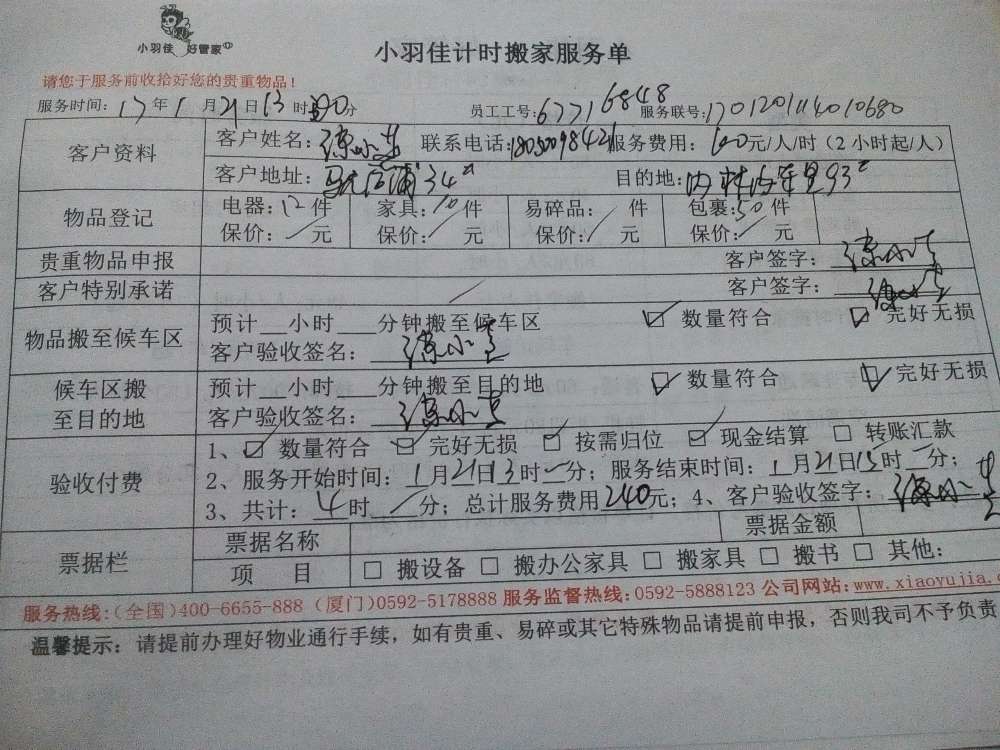 小羽佳 好管家
小羽佳计时搬家服务单
请您于服务前收拾好您的贵重物品！
服务时间：17年1月21日13时00分 员工工号：67716848 服务联号：
客户资料 客户姓名： 联系电话： 服务费用：60元/人/时（2小时起/人）
客户地址： 34 目的地： 93
物品登记 电器：12件 家具：10件 易碎品：/件 包裹：50件
保价：/元 保价：/元 保价：/元 保价：/元
贵重物品申报 客户签字：
客户特别承诺 / 客户签字：
物品搬至候车区 预计__小时___分钟搬至候车区 ☑ 数量符合 ☑ 完好无损
客户验收签名：
候车区搬至目的地 预计__小时___分钟搬至目的地 ☑ 数量符合 ☑ 完好无损
客户验收签名：
验收付费 1、☑ 数量符合 ☑ 完好无损 ☑ 按需归位 ☑ 现金结算 □ 转账汇款
2、服务开始时间：1月21日13时/分；服务结束时间：1月21日15时/分；
3、共计：4时/分；总计服务费用240元；4、客户验收签字：
票据栏 票据名称 票据金额
项 目 □ 搬设备 □ 搬办公家具 □ 搬家具 □ 搬书 □ 其他：
服务热线：(全国)400-6655-888 (厦门)0592-5178888 服务监督热线：0592-5888123 公司网站：www.xiaoyujia.c
温馨提示：请提前办理好物业通行手续，如有贵重、易碎或其它特殊物品请提前申报，否则我司不予负责